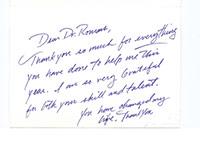 Dear Dr. Romano,
Thank you so much for everything
you have done to help me this
year. I am so very grateful
for both your skill and talent.
You have changed my
life. Thank you